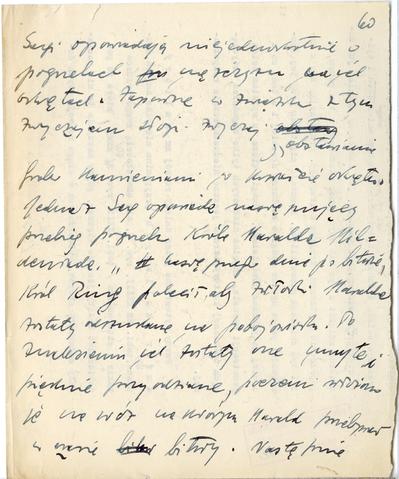 60
Sagi opowiadają niejednokrotnie o
pogrzebach mężczyzn na ich
okrętach. Zapewne w związku z tym
zwyczajem stoi zwyczaj obstawiania
grobu kamieniami w kształcie okrętu.
Jedna z Sag opowiada następujący
przebieg pogrzebu Króla Haralda Hil-
detanda. „Następnego dnia po bitwie,
Król Ring polecił, aby zwłoki Haralda
zostały odszukane na pobojowisku. Po
znalezieniu ich zostały one umyte i
pięknie przyodziane, poczem włożono
je na wóz na którym Harald przebywał
w czasie bitwy. Następnie